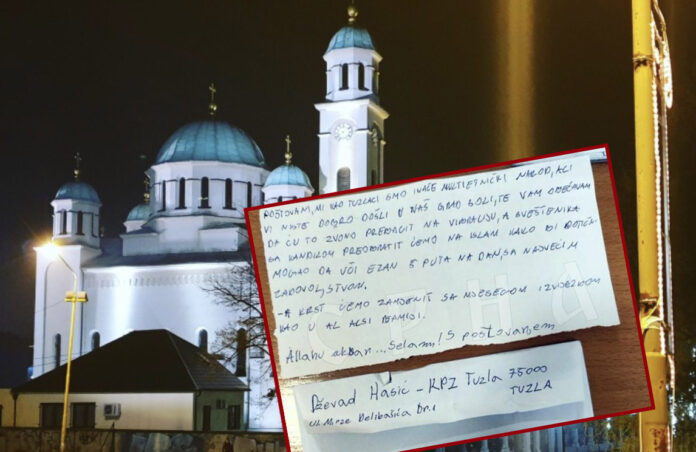 POŠTOVANI, MI KAO TUZLACI SMO INAČE MULTIETNIČKI NAROD, ALI
VI NISTE DOBRO DOŠLI U NAŠ GRAD TE VAM OBEĆAVAM
DA ĆU TO ZVONO PREBACIT NA VIBRACIJU, A SVEŠTENIKA
SA KANDILOM PREOBRATIT ĆEMO NA ISLAM KAKO BI DOTIČNI
MOGAO DA UČI EZAN 5 PUTA NA DAN, SA NAJVEĆIM
ZADOVOLJSTVOM.
-A KRST ĆEMO ZAMJENIT SA MJESECOM I ZVIJEZDOM
KAO U AL AKSI DŽAMIJI.
Allahu akbar... Selam! S poštovanjem
СРНА
Dževad Hasić - KPZ Tuzla 75000
Ul. Mirze Delibašića bn.1 TUZLA